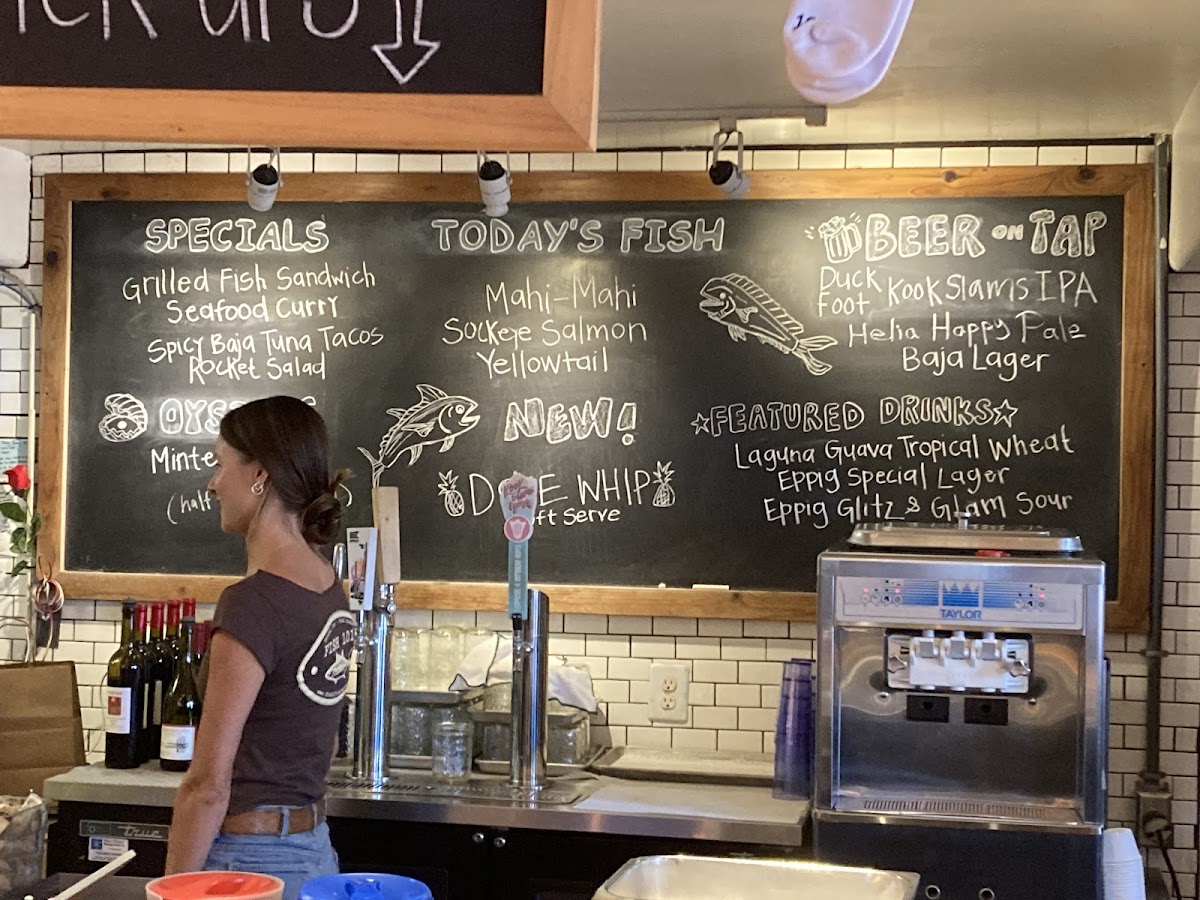 SPECIALS
Grilled Fish Sandwich
Seafood Curry
Spicy Baja Tuna Tacos
Rocket Salad
TODAY'S FISH
Mahi-Mahi
Sockeye Salmon
Yellowtail
NEW!
Soft Serve
WHIP
BEER ON TAP
Duck Foot Kook Slams IPA
Helia Happy Pale
Baja Lager
FEATURED DRINKS
Laguna Guava Tropical Wheat
Eppig Special Lager
Eppig Glitz & Glam Sour
(half
FISH 101
TAYLOR
true